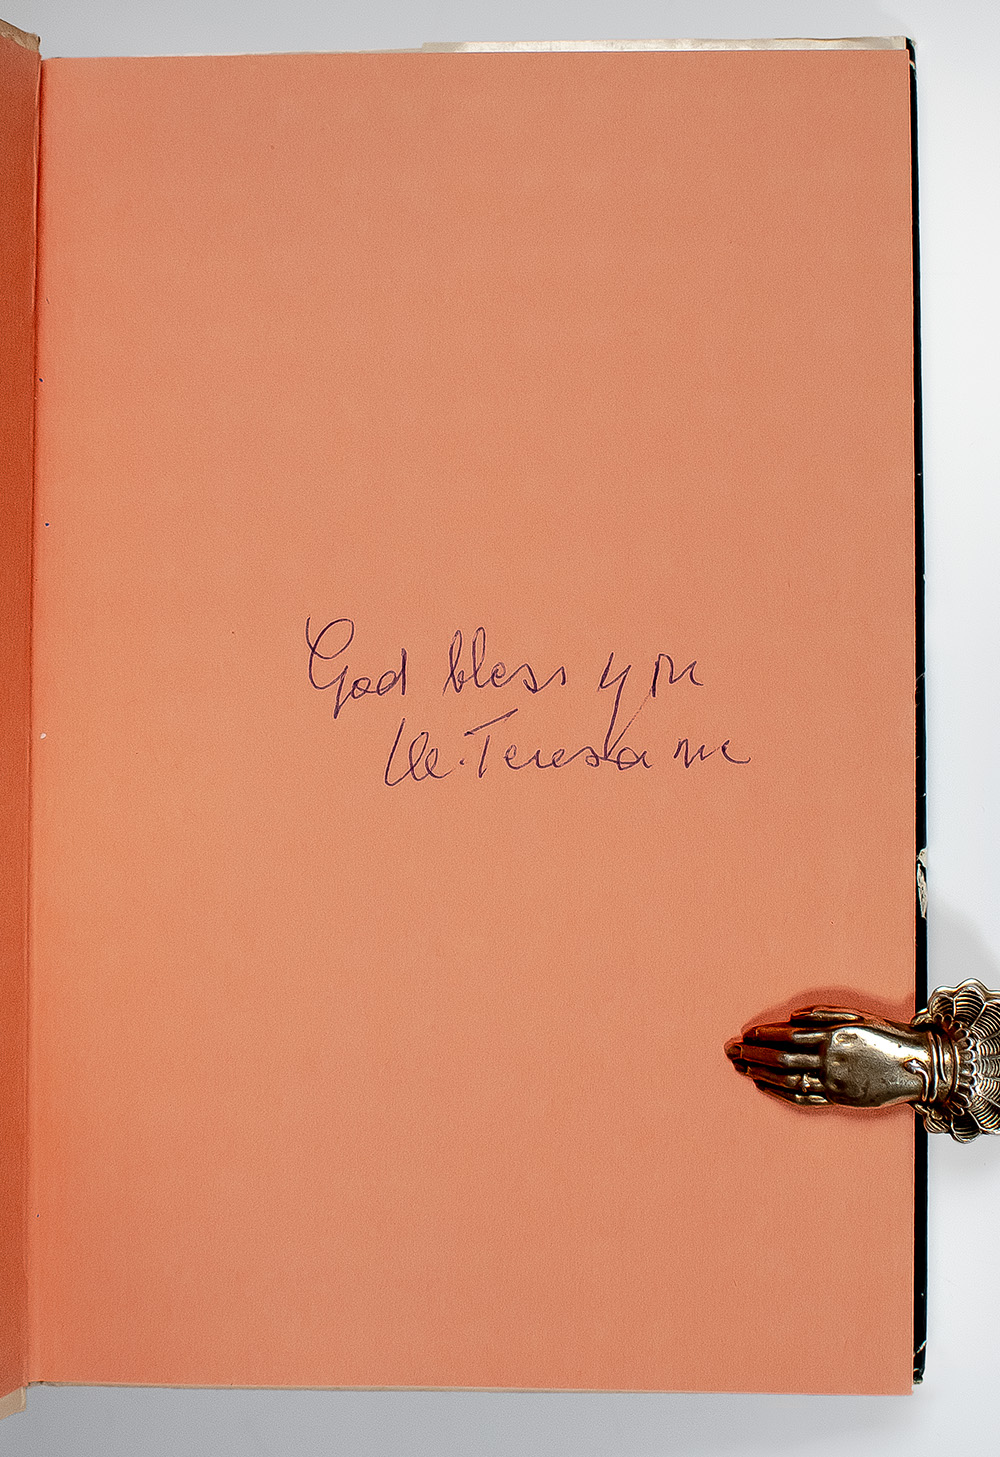 God bless you
M. Teresa mc